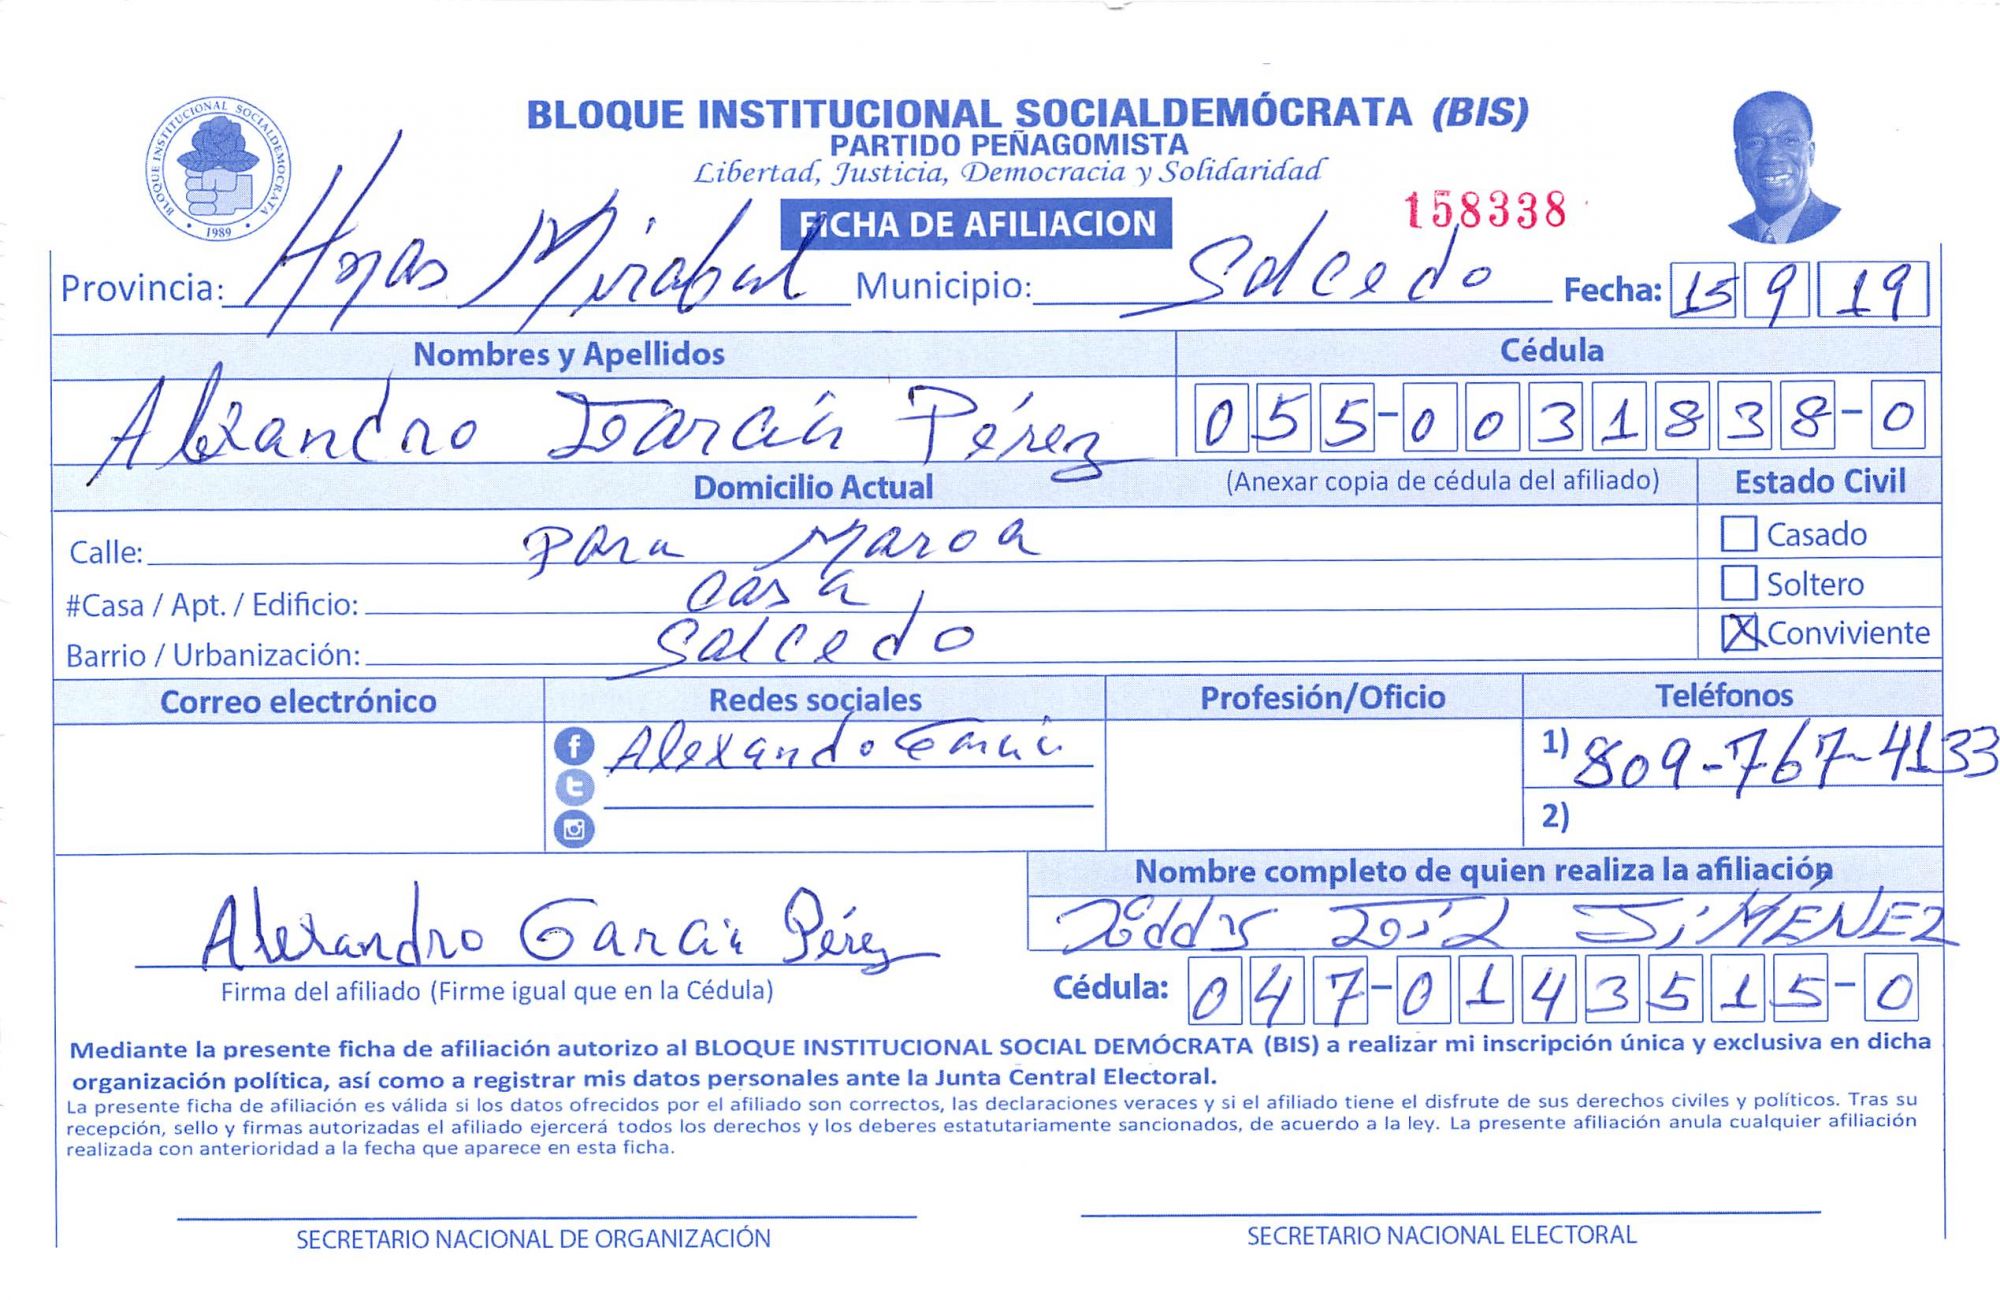 BLOQUE INSTITUCIONAL SOCIALDEMOCRATA
1989
BLOQUE INSTITUCIONAL SOCIALDEMÓCRATA (BIS)
PARTIDO PEÑAGOMISTA
Libertad, Justicia, Democracia y Solidaridad
FICHA DE AFILIACION
158338
Provincia: Hnas Mirabal Municipio: Salcedo Fecha: 15 9 19
Nombres y Apellidos Cédula
Alexandro García Pérez 055-0031838-0
Domicilio Actual (Anexar copia de cédula del afiliado) Estado Civil
Calle: Para Maroa Casado
#Casa / Apt. / Edificio: casa Soltero
Barrio / Urbanización: Salcedo X Conviviente
Correo electrónico Redes sociales Profesión/Oficio Teléfonos
Alexando Garcia 1) 809-767-4133
2)
Nombre completo de quien realiza la afiliación
JiMÉNEZ
Alexandro García Pérez
Firma del afiliado (Firme igual que en la Cédula) Cédula: 047-0143515-0
Mediante la presente ficha de afiliación autorizo al BLOQUE INSTITUCIONAL SOCIAL DEMÓCRATA (BIS) a realizar mi inscripción única y exclusiva en dicha
organización política, así como a registrar mis datos personales ante la Junta Central Electoral.
La presente ficha de afiliación es válida si los datos ofrecidos por el afiliado son correctos, las declaraciones veraces y si el afiliado tiene el disfrute de sus derechos civiles y políticos. Tras su
recepción, sello y firmas autorizadas el afiliado ejercerá todos los derechos y los deberes estatutariamente sancionados, de acuerdo a la ley. La presente afiliación anula cualquier afiliación
realizada con anterioridad a la fecha que aparece en esta ficha.
SECRETARIO NACIONAL DE ORGANIZACIÓN SECRETARIO NACIONAL ELECTORAL